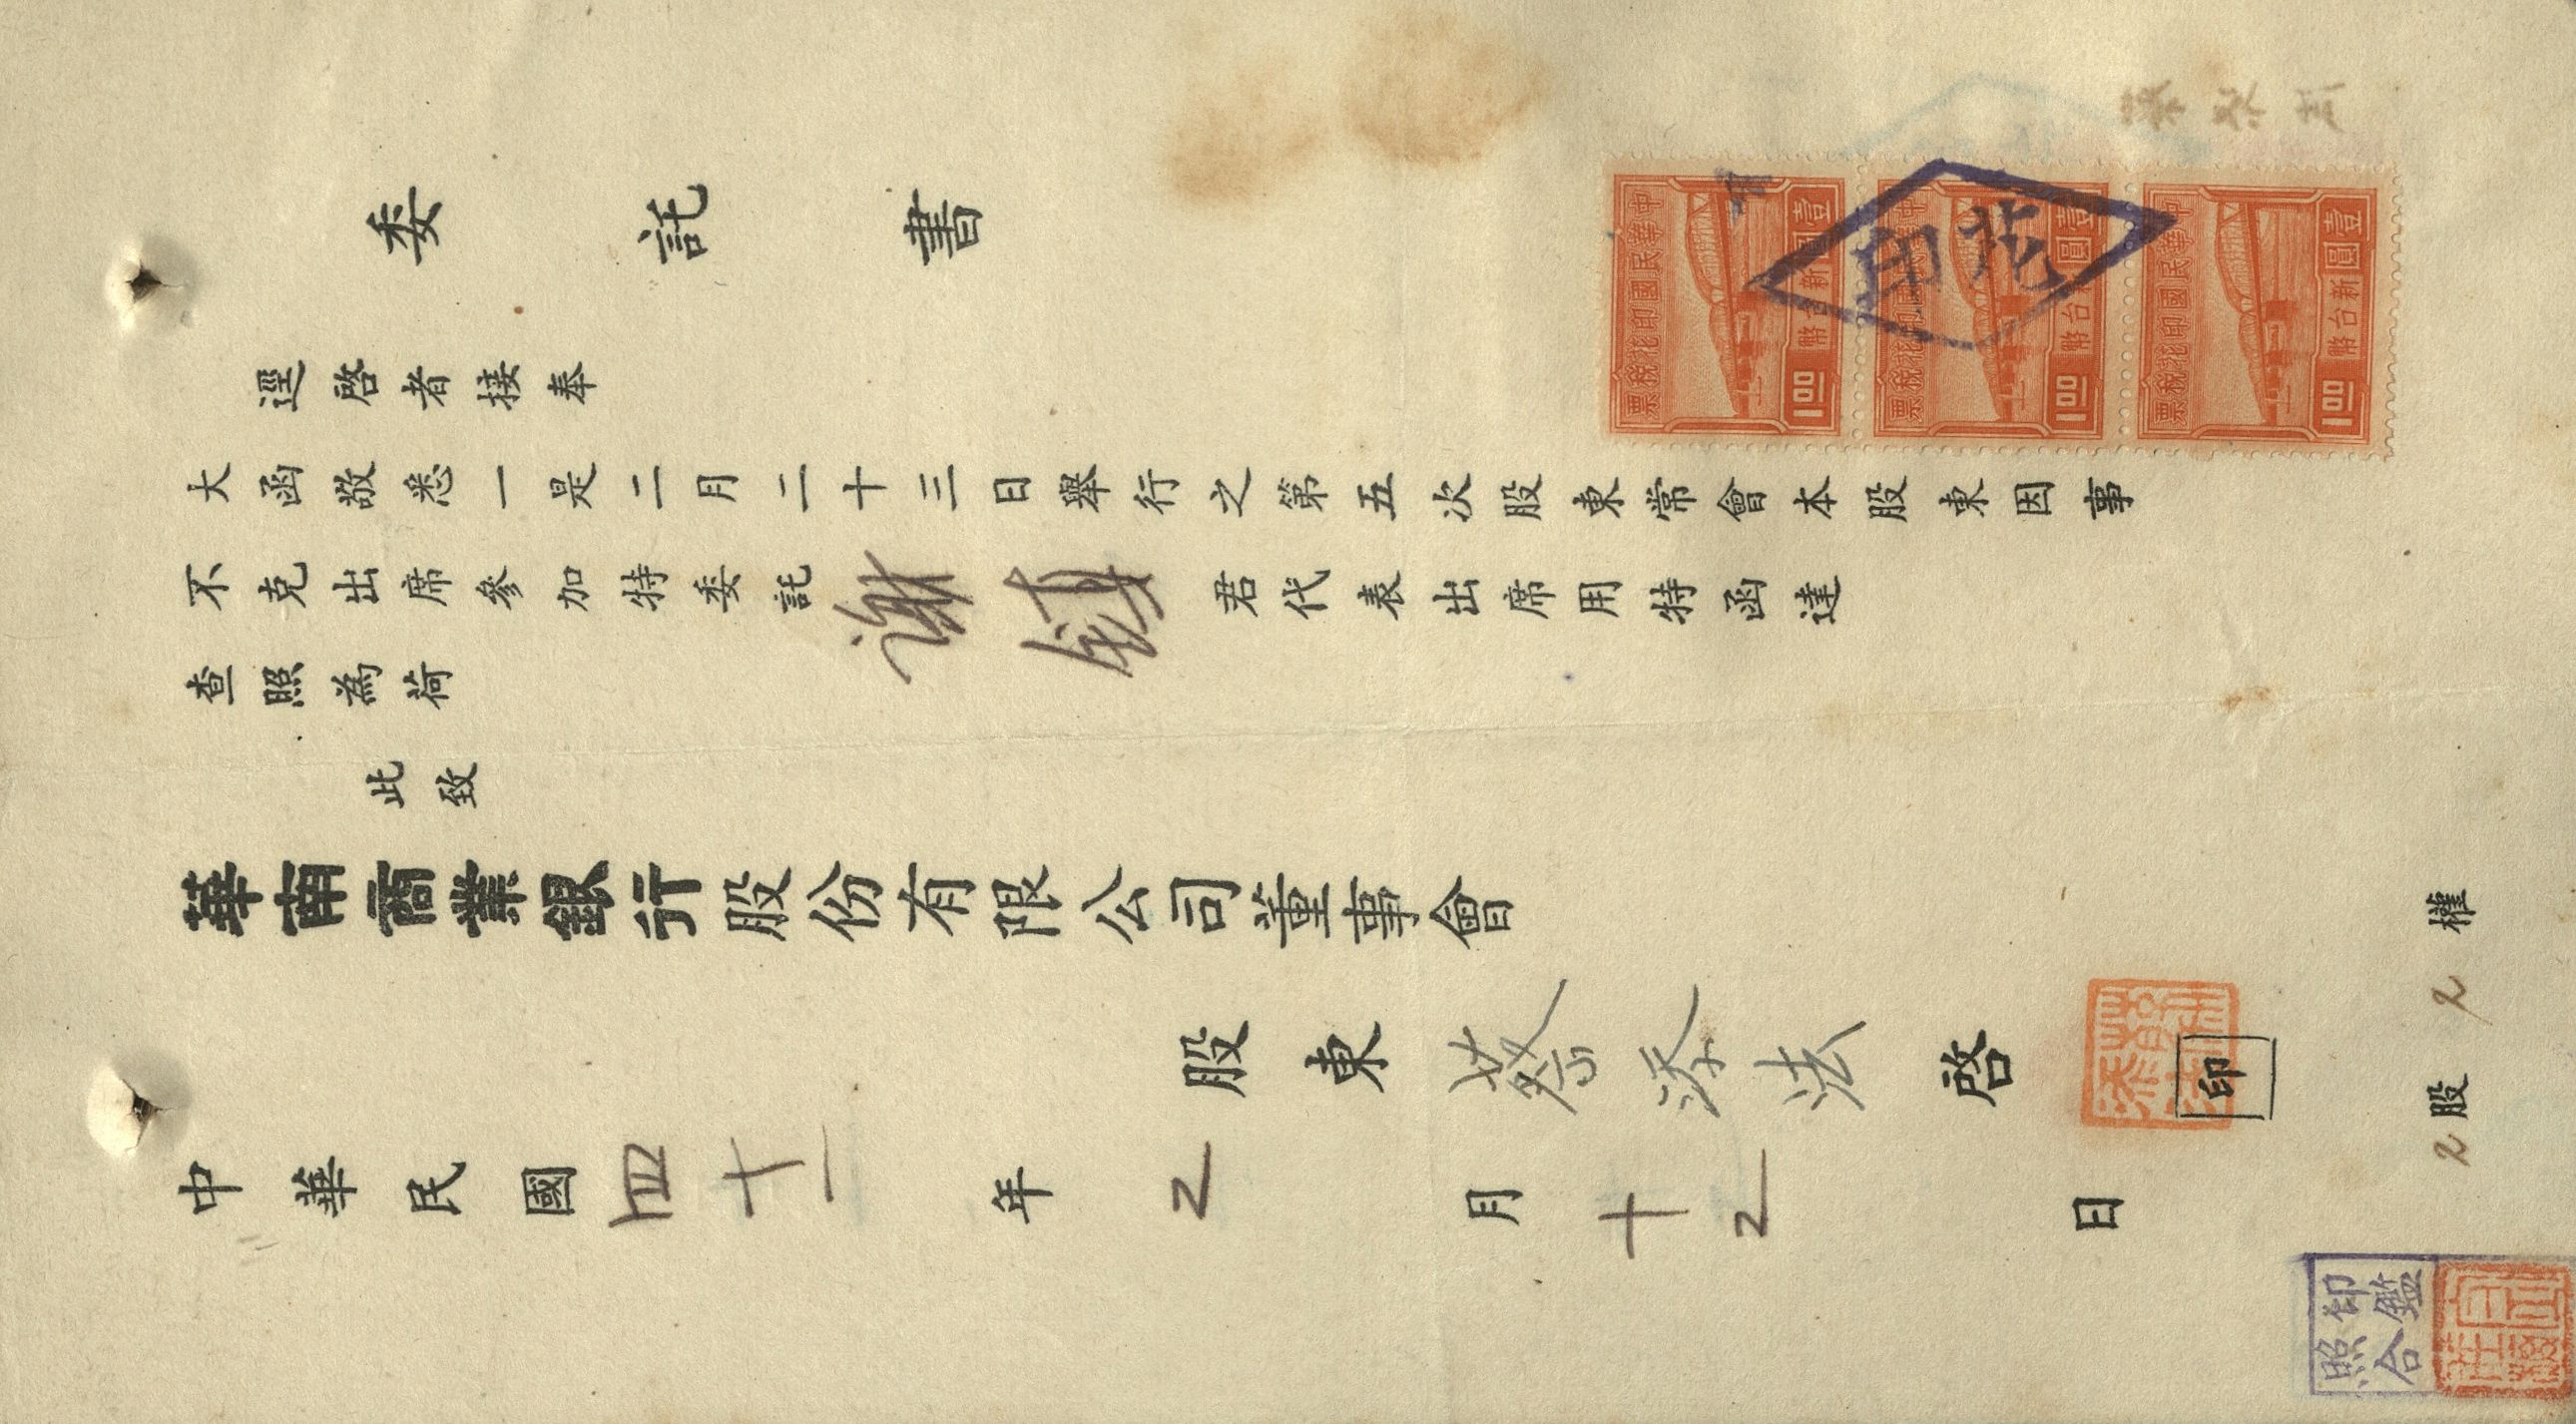 委託書
逕啓者接奉
大函敬悉一是二月二十三日舉行之第五次股東常會本股東因事
不克出席參加特委託謝鎮君代表出席用特函達
查照為荷
此致
華南商業銀行股份有限公司董事會
股東蔡添法啓
印
中華民國四十一年2月十2日
2股2權
中華民國印花稅票
壹圓
新台幣
1.00
中華民國印花稅票
壹圓
新台幣
1.00
中華民國印花稅票
壹圓
新台幣
1.00
印花
印鑑
照合